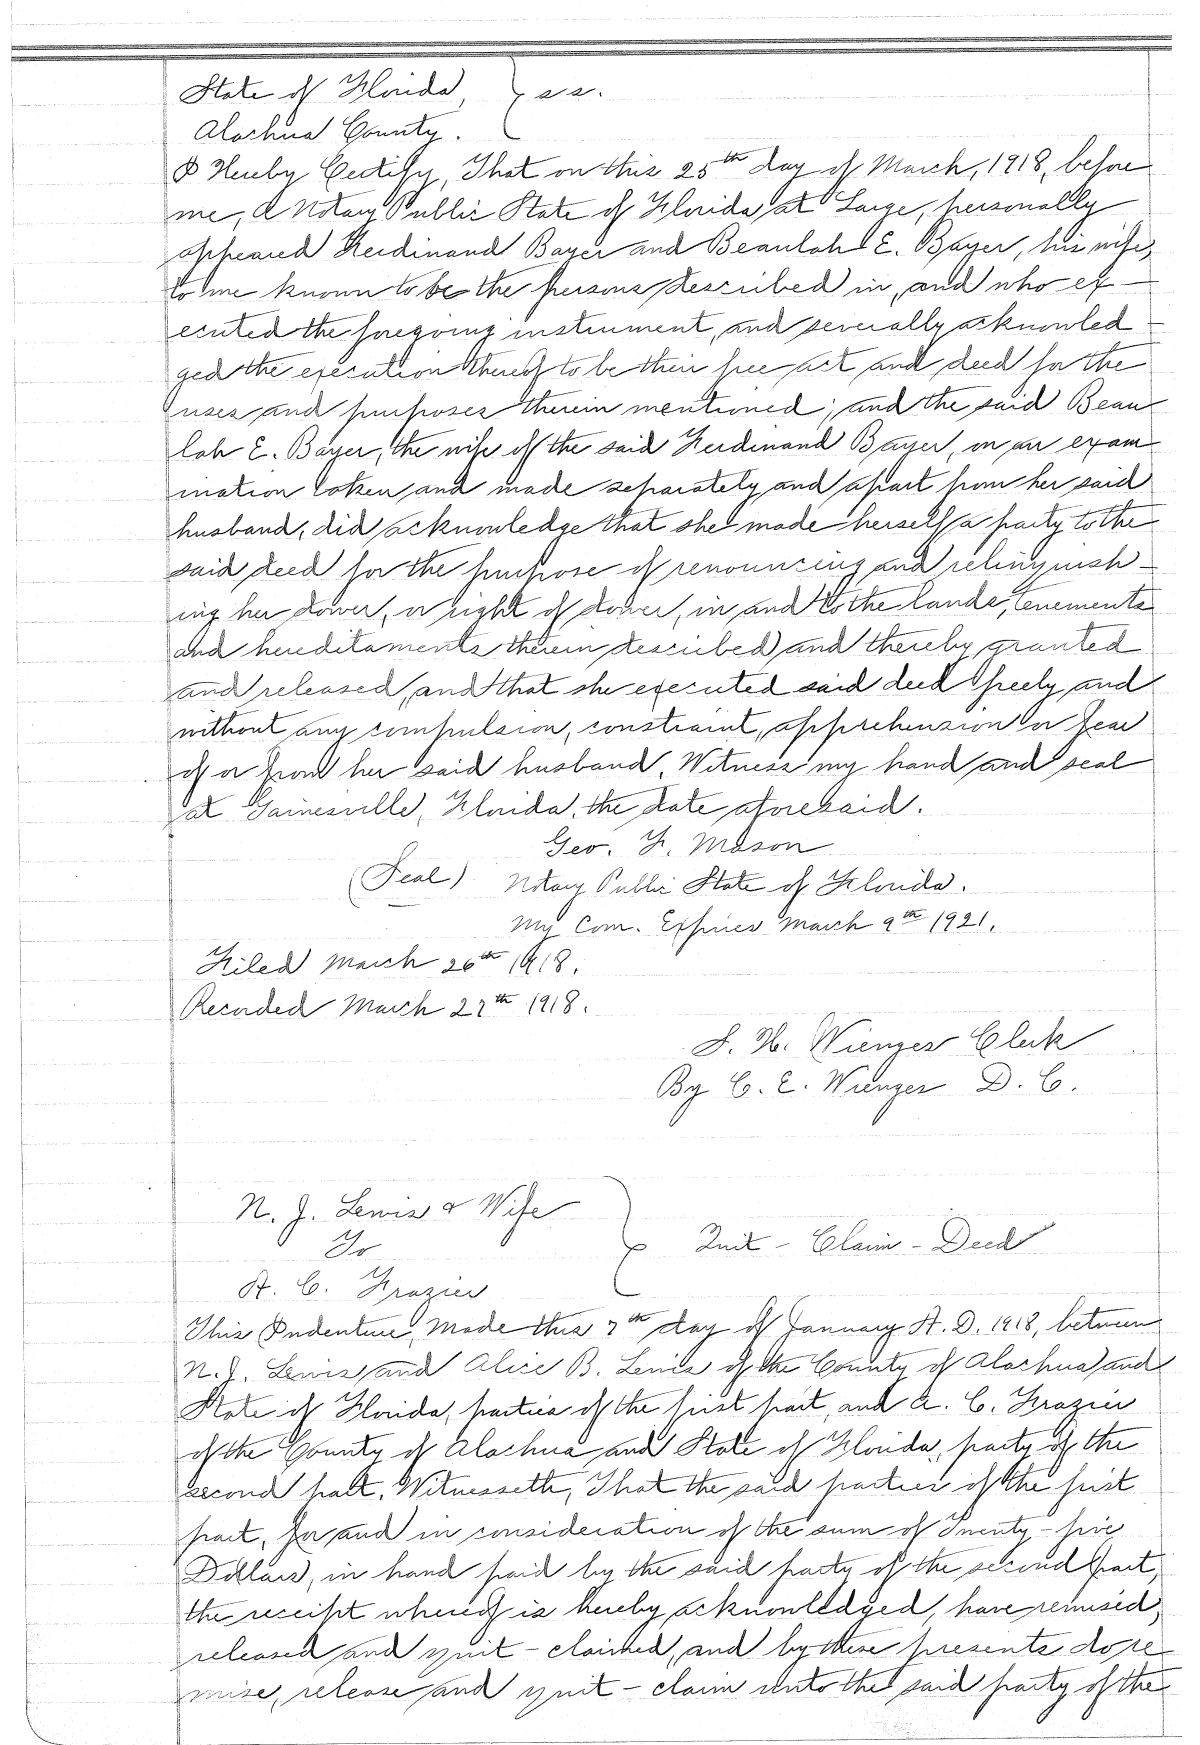 State of Florida, } ss.
Alachua County.
I Hereby Certify, That on this 25th day of March, 1918, before
me, a Notary Public State of Florida at Large, personally
appeared Ferdinand Bayer and Beaulah E. Bayer, his wife,
to me known to be the persons described in, and who ex-
ecuted the foregoing instrument, and severally acknowled-
ged the execution thereof to be their free act and deed for the
uses and purposes therein mentioned; and the said Beau
lah E. Bayer, the wife of the said Ferdinand Bayer, on an exam
ination taken and made separately and apart from her said
husband, did acknowledge that she made herself a party to the
said deed for the purpose of renouncing and relinquish-
ing her dower, or right of dower, in and to the lands, tenements
and hereditaments therein described and thereby granted
and released, and that she executed said deed freely and
without any compulsion, constraint, apprehension or fear
of or from her said husband. Witness my hand and seal
at Gainesville, Florida, the date aforesaid.
Geo. F. Mason
(Seal) Notary Public State of Florida.
My Com. Expires March 9th 1921.
Filed March 26th 1918.
Recorded March 27th 1918.
S. H. Wienges Clerk
By C. E. Wienges D. C.
N. J. Lewis & Wife
To } Quit-Claim-Deed
A. C. Frazier
This Indenture, Made this 7th day of January A.D. 1918, between
N. J. Lewis and Alice B. Lewis of the County of Alachua and
State of Florida, parties of the first part, and A. C. Frazier
of the County of Alachua and State of Florida, party of the
second part, Witnesseth, That the said parties of the first
part, for and in consideration of the sum of Twenty-five
Dollars, in hand paid by the said party of the second part,
the receipt whereof is hereby acknowledged, have remised,
released and quit-claimed, and by these presents do re-
mise, release and quit-claim unto the said party of the